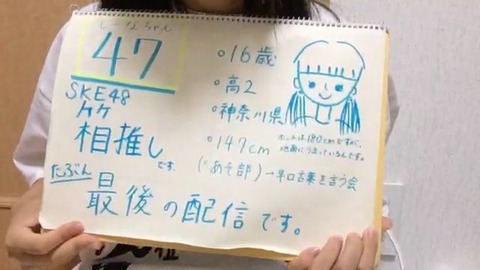 しーなちゃん
47
SKE48
ケケ
相推し
です。
たぶん
最後の配信です。
○16歳
○高2
○神奈川県
○147cm
ホントは180cmですが、
地面にうまっているんです。
("あそ部)→早口言葉を言う会